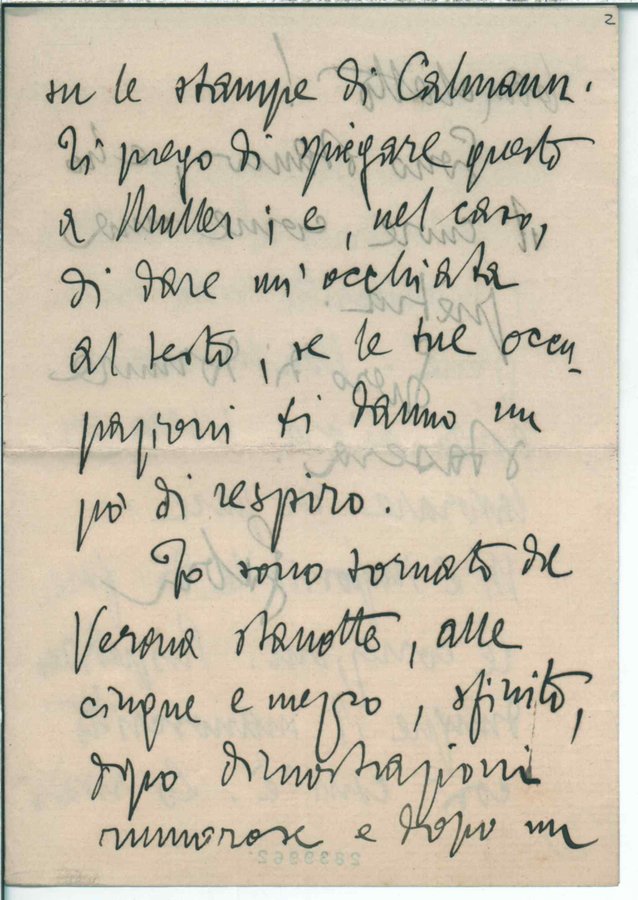 2
su le stampe di Calmann.
Ti prego di spiegare questo
a Muller; e, nel caso,
di dare un'occhiata
al testo, se le tue occu-
pazioni ti danno un
pò di respiro.
Io sono tornato da
Verona stanotte, alle
cinque e mezzo, sfinito,
dopo dimostrazioni
rumorose e dopo un